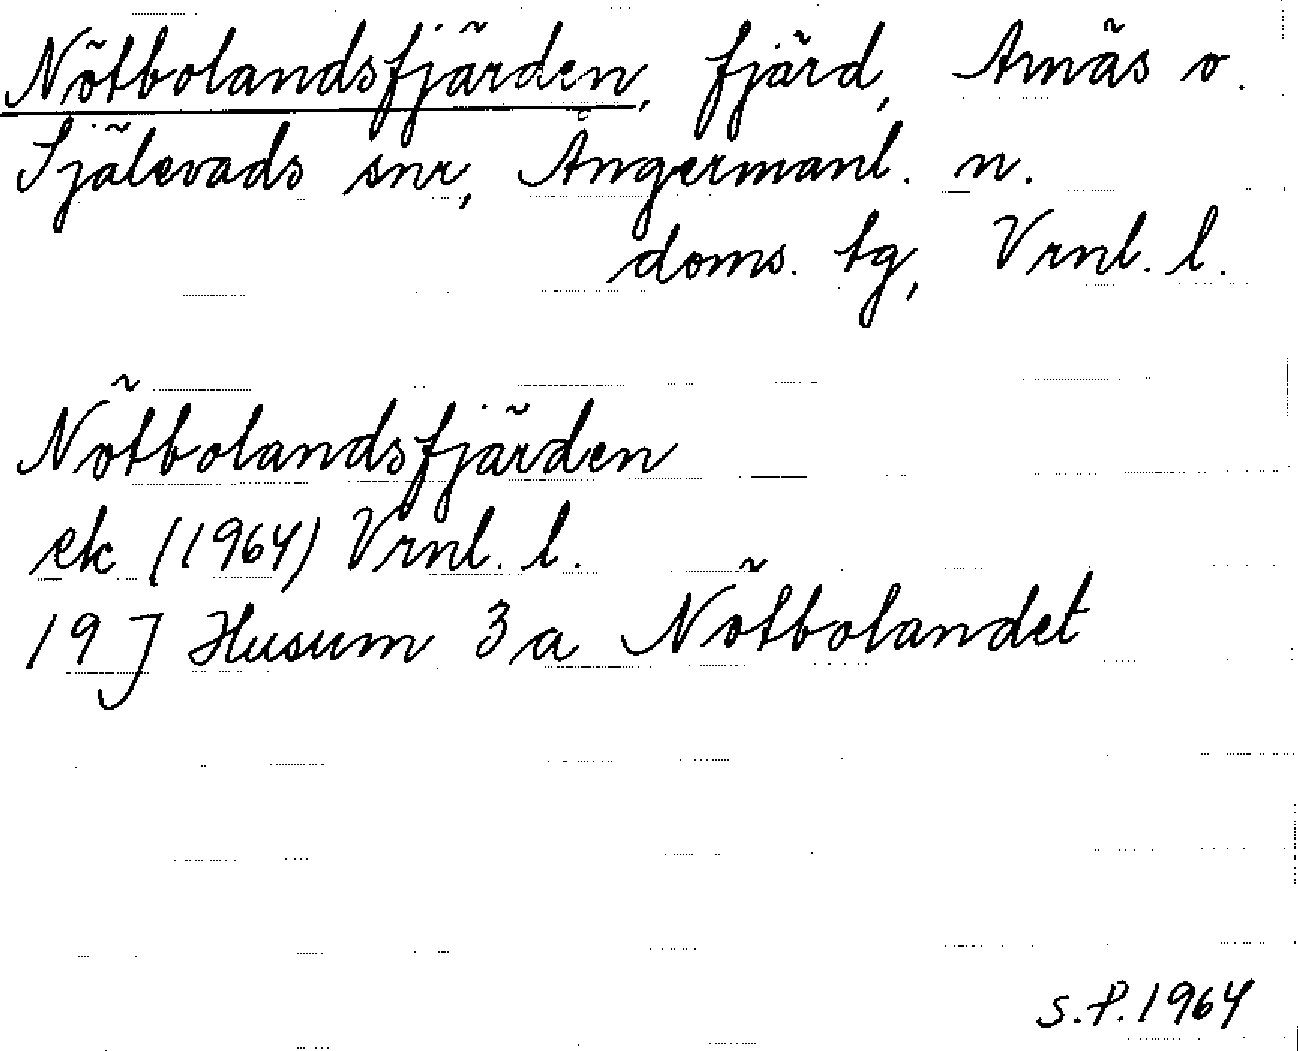 Nötbolandsfjärden, fjärd, Arnäs o.
Själevads snr, Ångermanl. n.
doms. tg, Vrnl. l.
Nötbolandsfjärden
ek (1964) Vrnl. l.
19 J Husum 3 a Nötbolandet
S.P. 1964